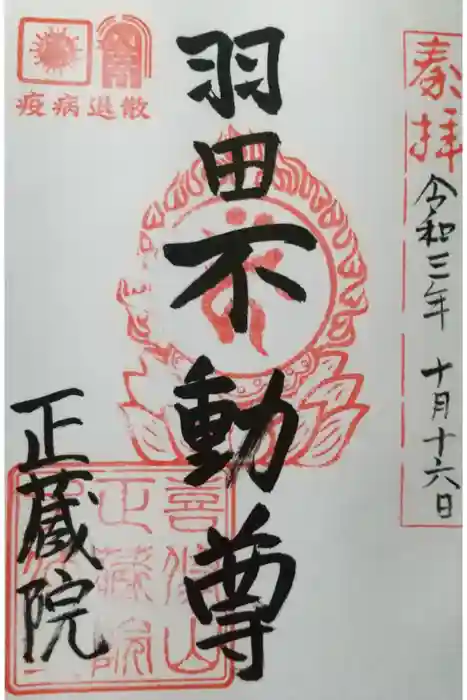 奉拝
令和三年 十月十六日
羽田不動尊
正蔵院
疫病退散